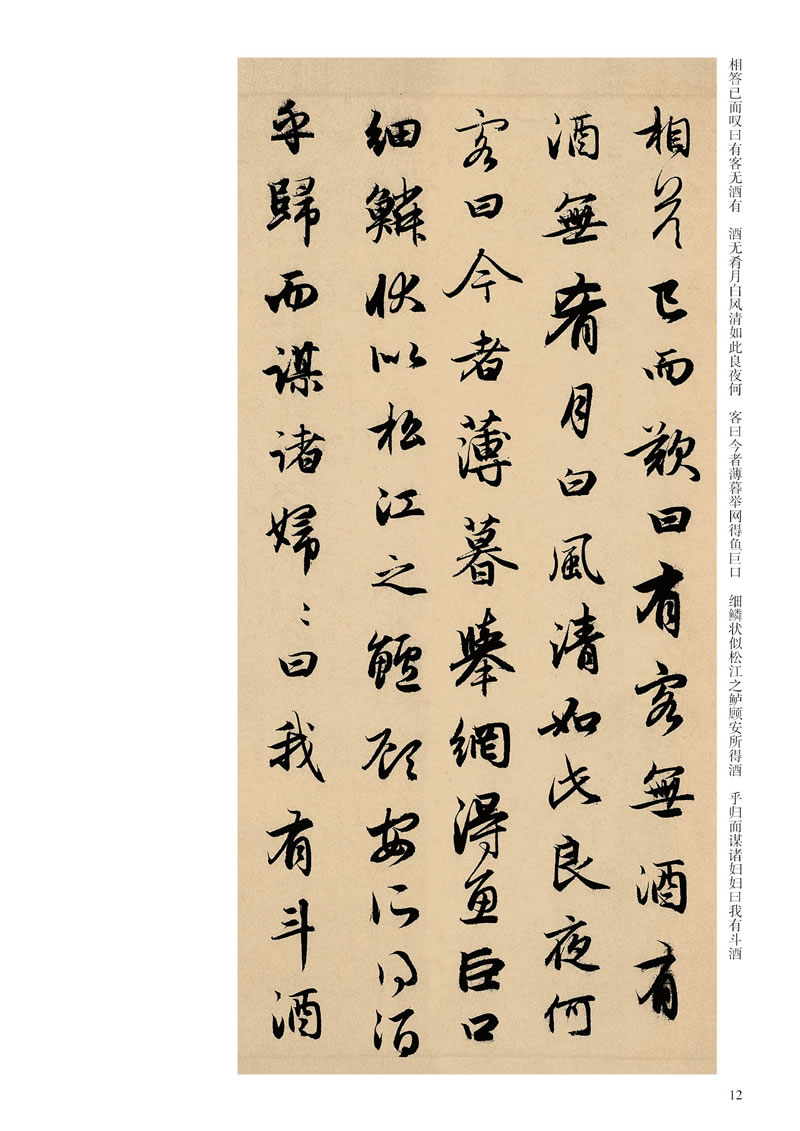 相答已而叹曰有客无酒有　酒无肴月白风清如此良夜何　客曰今者薄暮举网得鱼巨口　细鳞状似松江之鲈顾安所得酒　乎归而谋诸妇妇曰我有斗酒
相答已而歎曰有客無酒有
酒無肴月白風清如此良夜何
客曰今者薄暮舉網得魚巨口
細鱗状似松江之鱸顧安所得酒
乎歸而謀諸婦〻曰我有斗酒
12